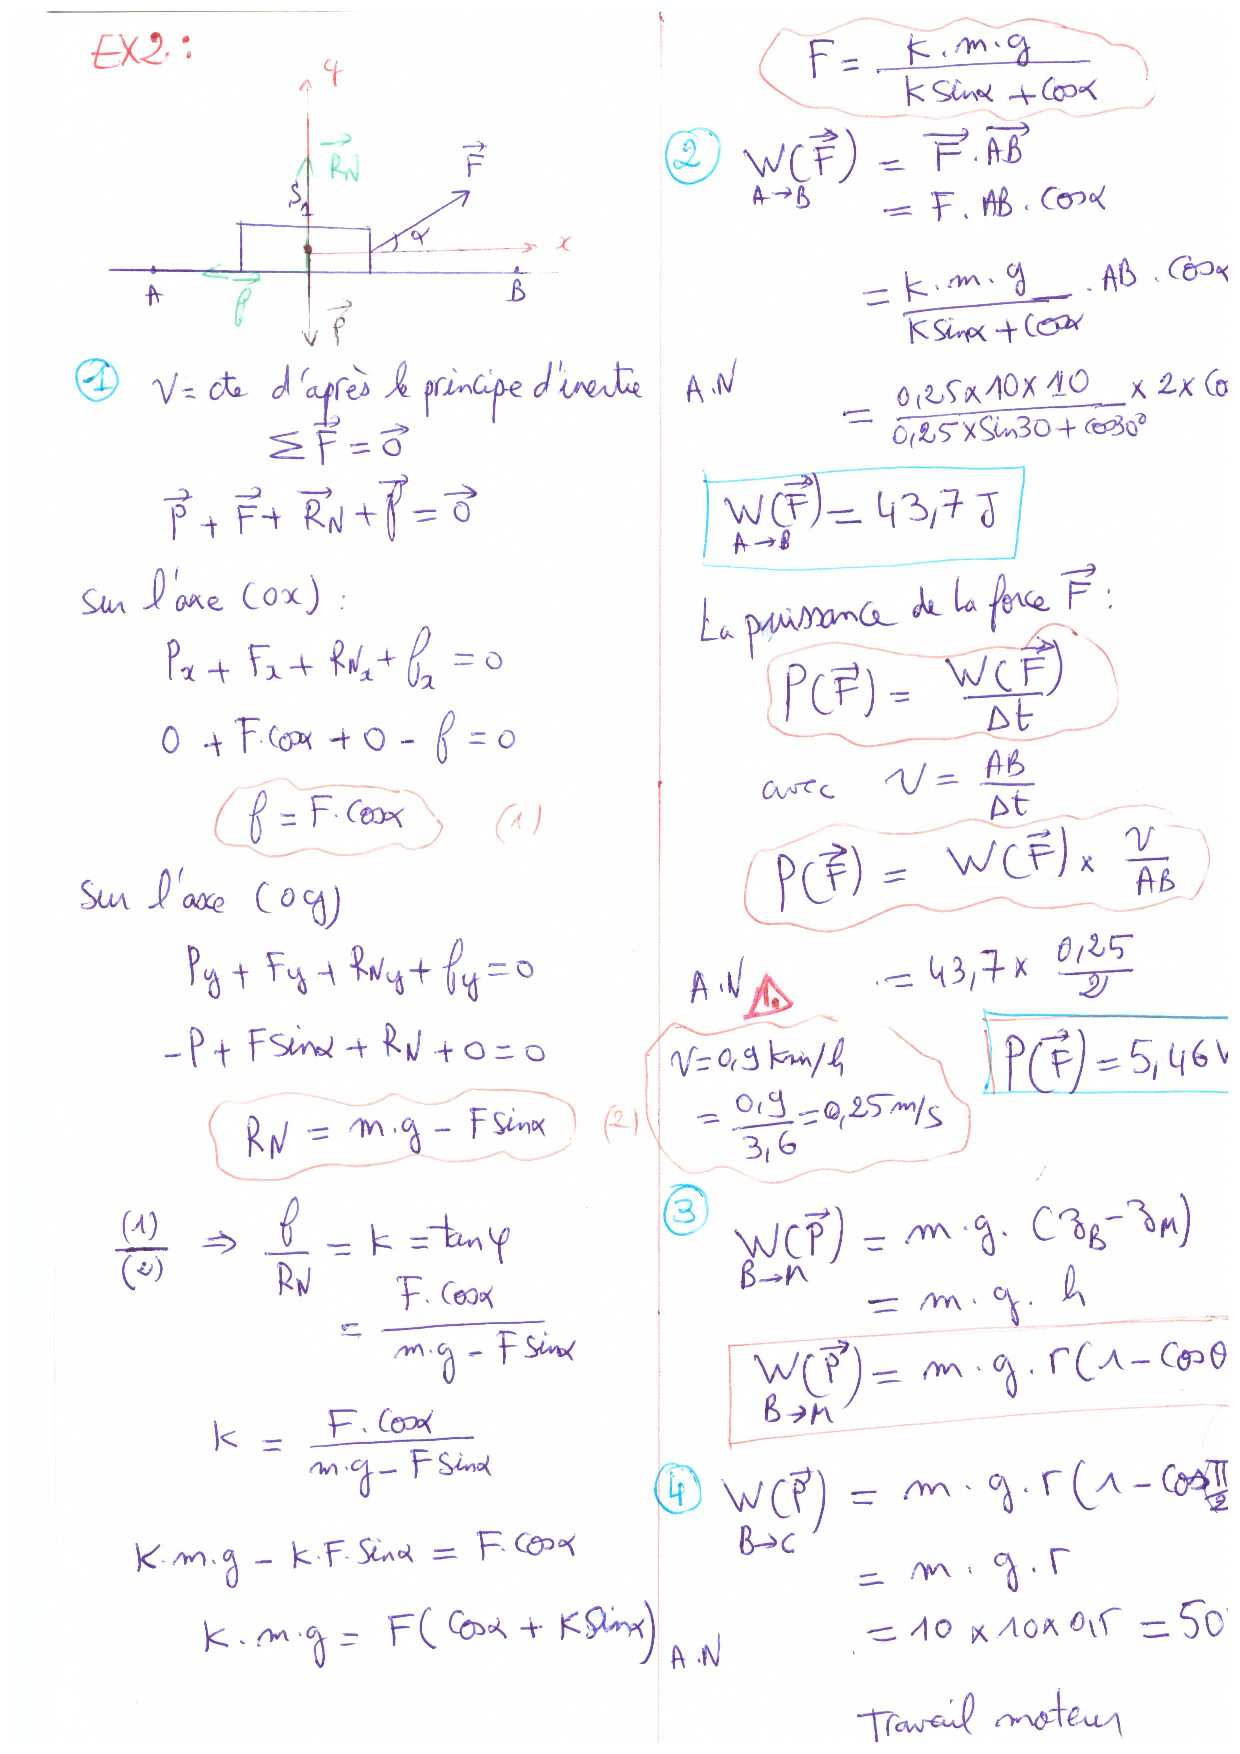 EX2:
y
R_N
S_1
F
α
x
A
f
B
P
1 V = cte d'après le principe d'inertie
Σ F = 0
P + F + R_N + f = 0
Sur l'axe (ox) :
P_x + F_x + R_Nx + f_x = 0
0 + F.cosα + 0 - f = 0
f = F.cosα (1)
Sur l'axe (oy)
P_y + F_y + R_Ny + f_y = 0
-P + F sinα + R_N + 0 = 0
R_N = m.g - F sinα (2)
(1)/(2) ⇒ f/R_N = k = tanφ
= F.cosα / (m.g - F sinα)
k = F.cosα / (m.g - F sinα)
k.m.g - k.F.sinα = F.cosα
k.m.g = F(cosα + k sinα)
F = k.m.g / (k sinα + cosα)
2 W(F) A→B = F.AB
= F.AB.cosα
= k.m.g / (k sinα + cosα) . AB . cosα
A.N = 0,25×10×10 / (0,25×sin30 + cos30°) × 2 × co
W(F) A→B = 43,7 J
La puissance de la force F :
P(F) = W(F)/Δt
avec v = AB/Δt
P(F) = W(F) × v/AB
A.N = 43,7 × 0,25/2
P(F) = 5,46
V = 0,9 km/h
= 0,9/3,6 = 0,25 m/s
3 W(P) B→M = m.g.(z_B - z_M)
= m.g.h
W(P) B→M = m.g.r(1 - cosθ
4 W(P) B→C = m.g.r(1 - cos π/2
= m.g.r
A.N = 10 × 10 × 0,5 = 50
Travail moteur